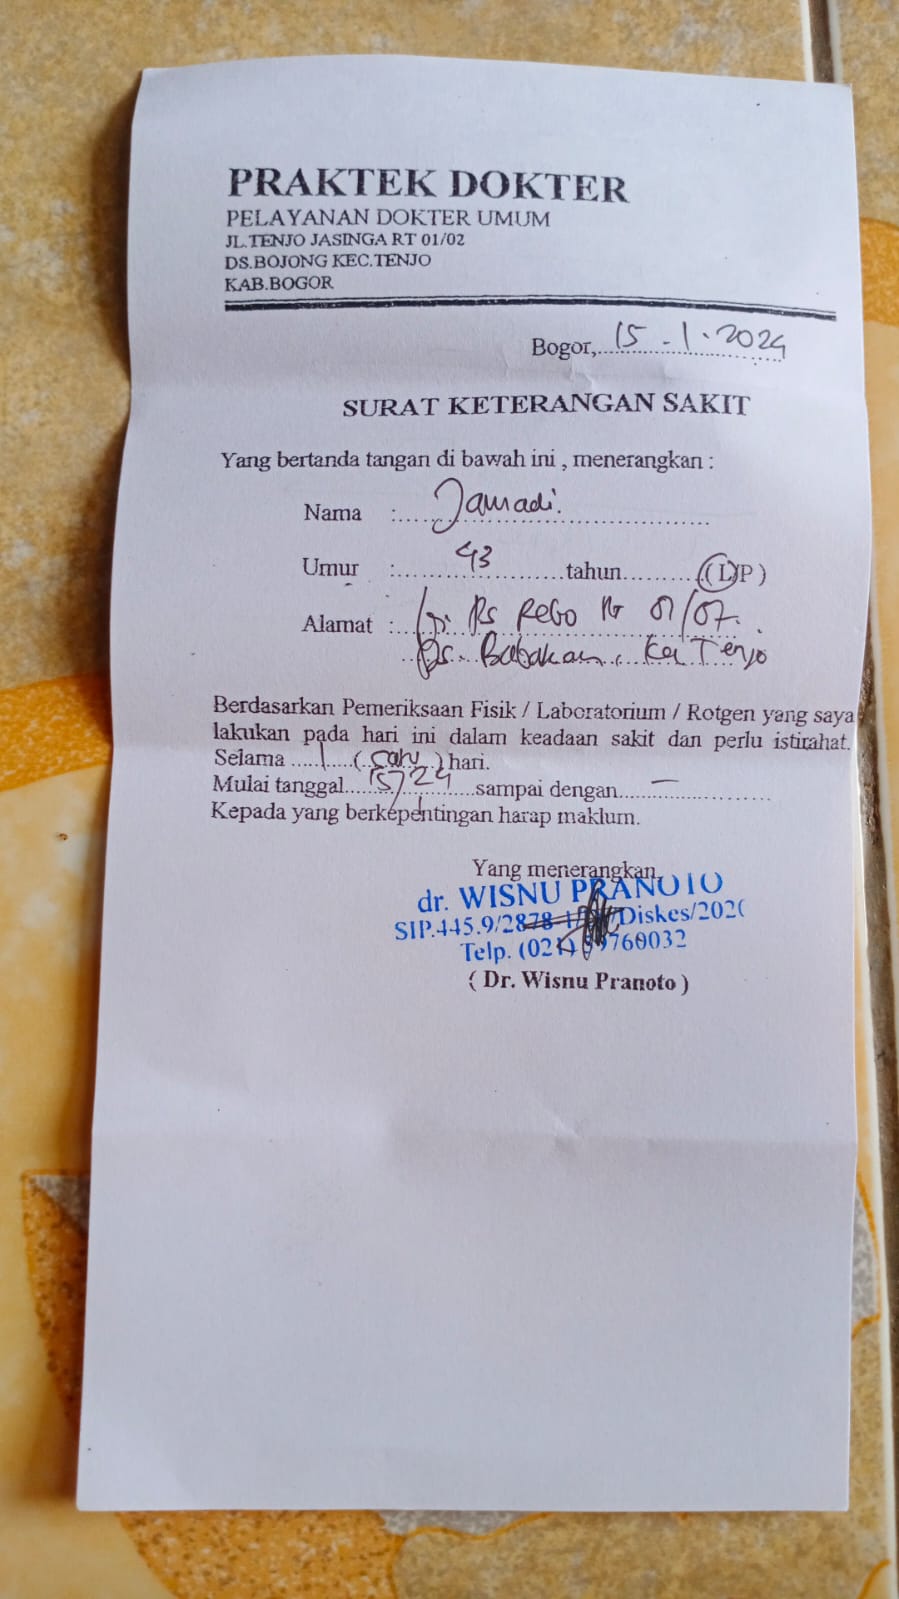 PRAKTEK DOKTER
PELAYANAN DOKTER UMUM
JL.TENJO JASINGA RT 01/02
DS.BOJONG KEC.TENJO
KAB.BOGOR
Bogor, 15 - 1 - 2024
SURAT KETERANGAN SAKIT
Yang bertanda tangan di bawah ini , menerangkan :
Nama : Jamadi.
Umur : 43 tahun (L/P)
Alamat : Rebo 01/07.
Ds. Babakan, Kec Tenjo
Berdasarkan Pemeriksaan Fisik / Laboratorium / Rotgen yang saya
lakukan pada hari ini dalam keadaan sakit dan perlu istirahat.
Selama 1 ( satu ) hari.
Mulai tanggal 15/1 24 sampai dengan —
Kepada yang berkepentingan harap maklum.
Yang menerangkan,
dr. WISNU PRANOTO
SIP.445.9/2878-1/ /Diskes/202
Telp. (021) 760032
( Dr. Wisnu Pranoto )